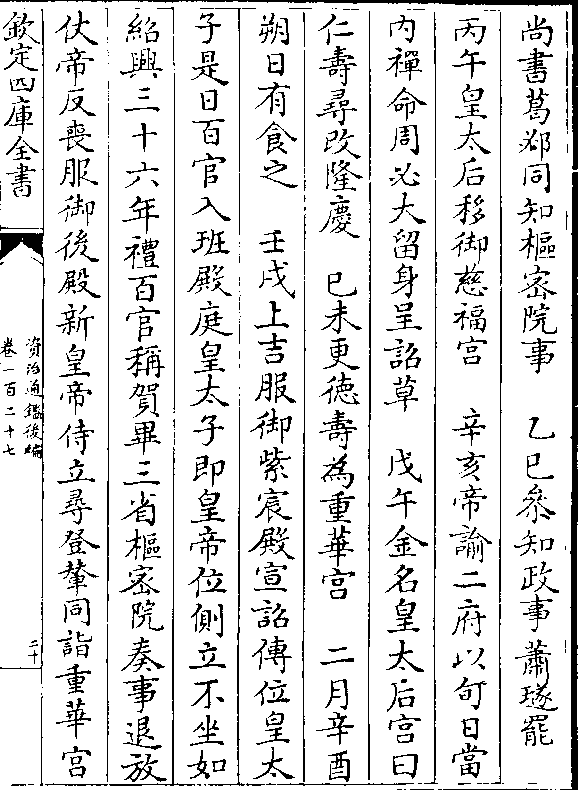 尚書葛邲同知樞密院事　乙巳參知政事蕭璲罷
丙午皇太后移御慈福宮　辛亥帝諭二府以旬日當
内禪命周必大留身呈詔草　戊午金名皇太后宫曰
仁壽尋改隆慶　已未更徳壽為重華宮　二月辛酉
朔日有食之　壬戌上吉服御紫宸殿宣詔傳位皇太
子是日百官入班殿庭皇太子即皇帝位側立不坐如
紹興三十六年禮百官稱賀畢三省樞密院奏事退放
仗帝反喪服御後殿新皇帝侍立尋登輦同詣重華宮
欽定四庫全書
資治通鑑後編
卷一百二十七
二十